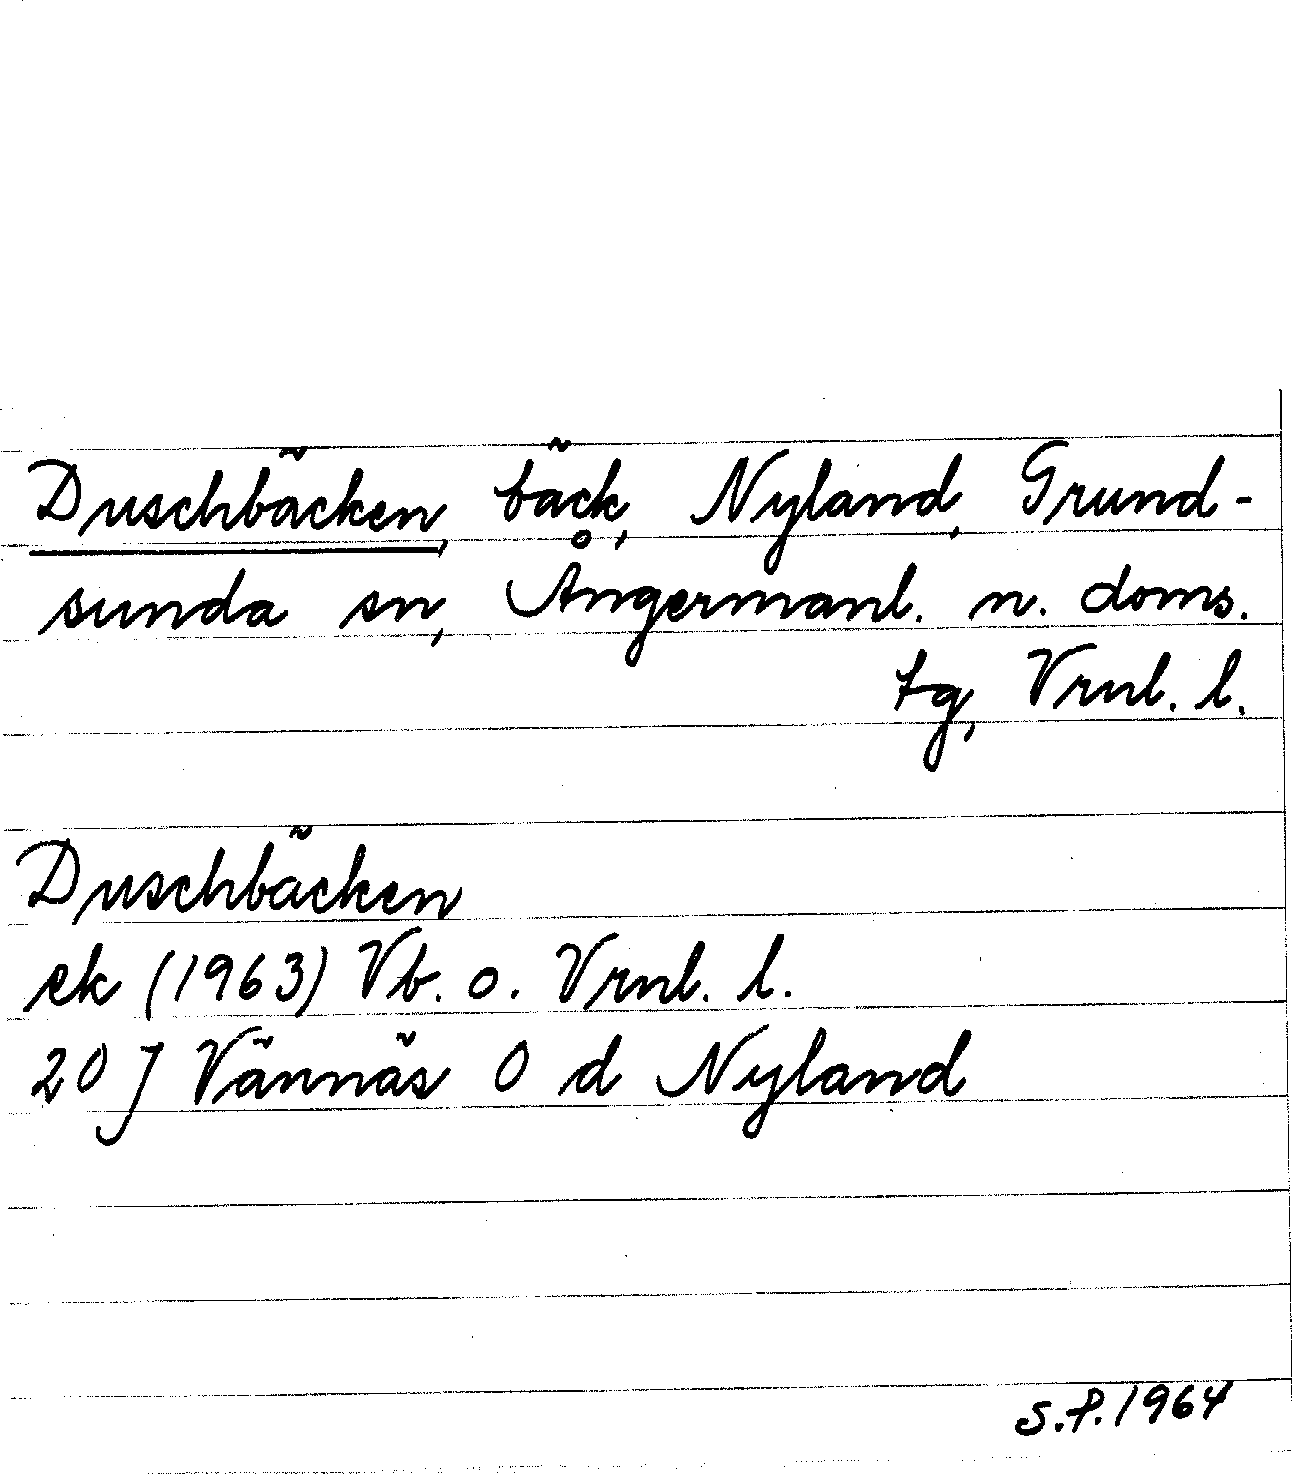 Duschbäcken, bäck, Nyland, Grund-
sunda sn, Ångermanl. n. doms.
tg, Vrnl. l.
Duschbäcken
ek (1963) Vb. o. Vrnl. l.
20 J Vännäs O d Nyland
S.P. 1964